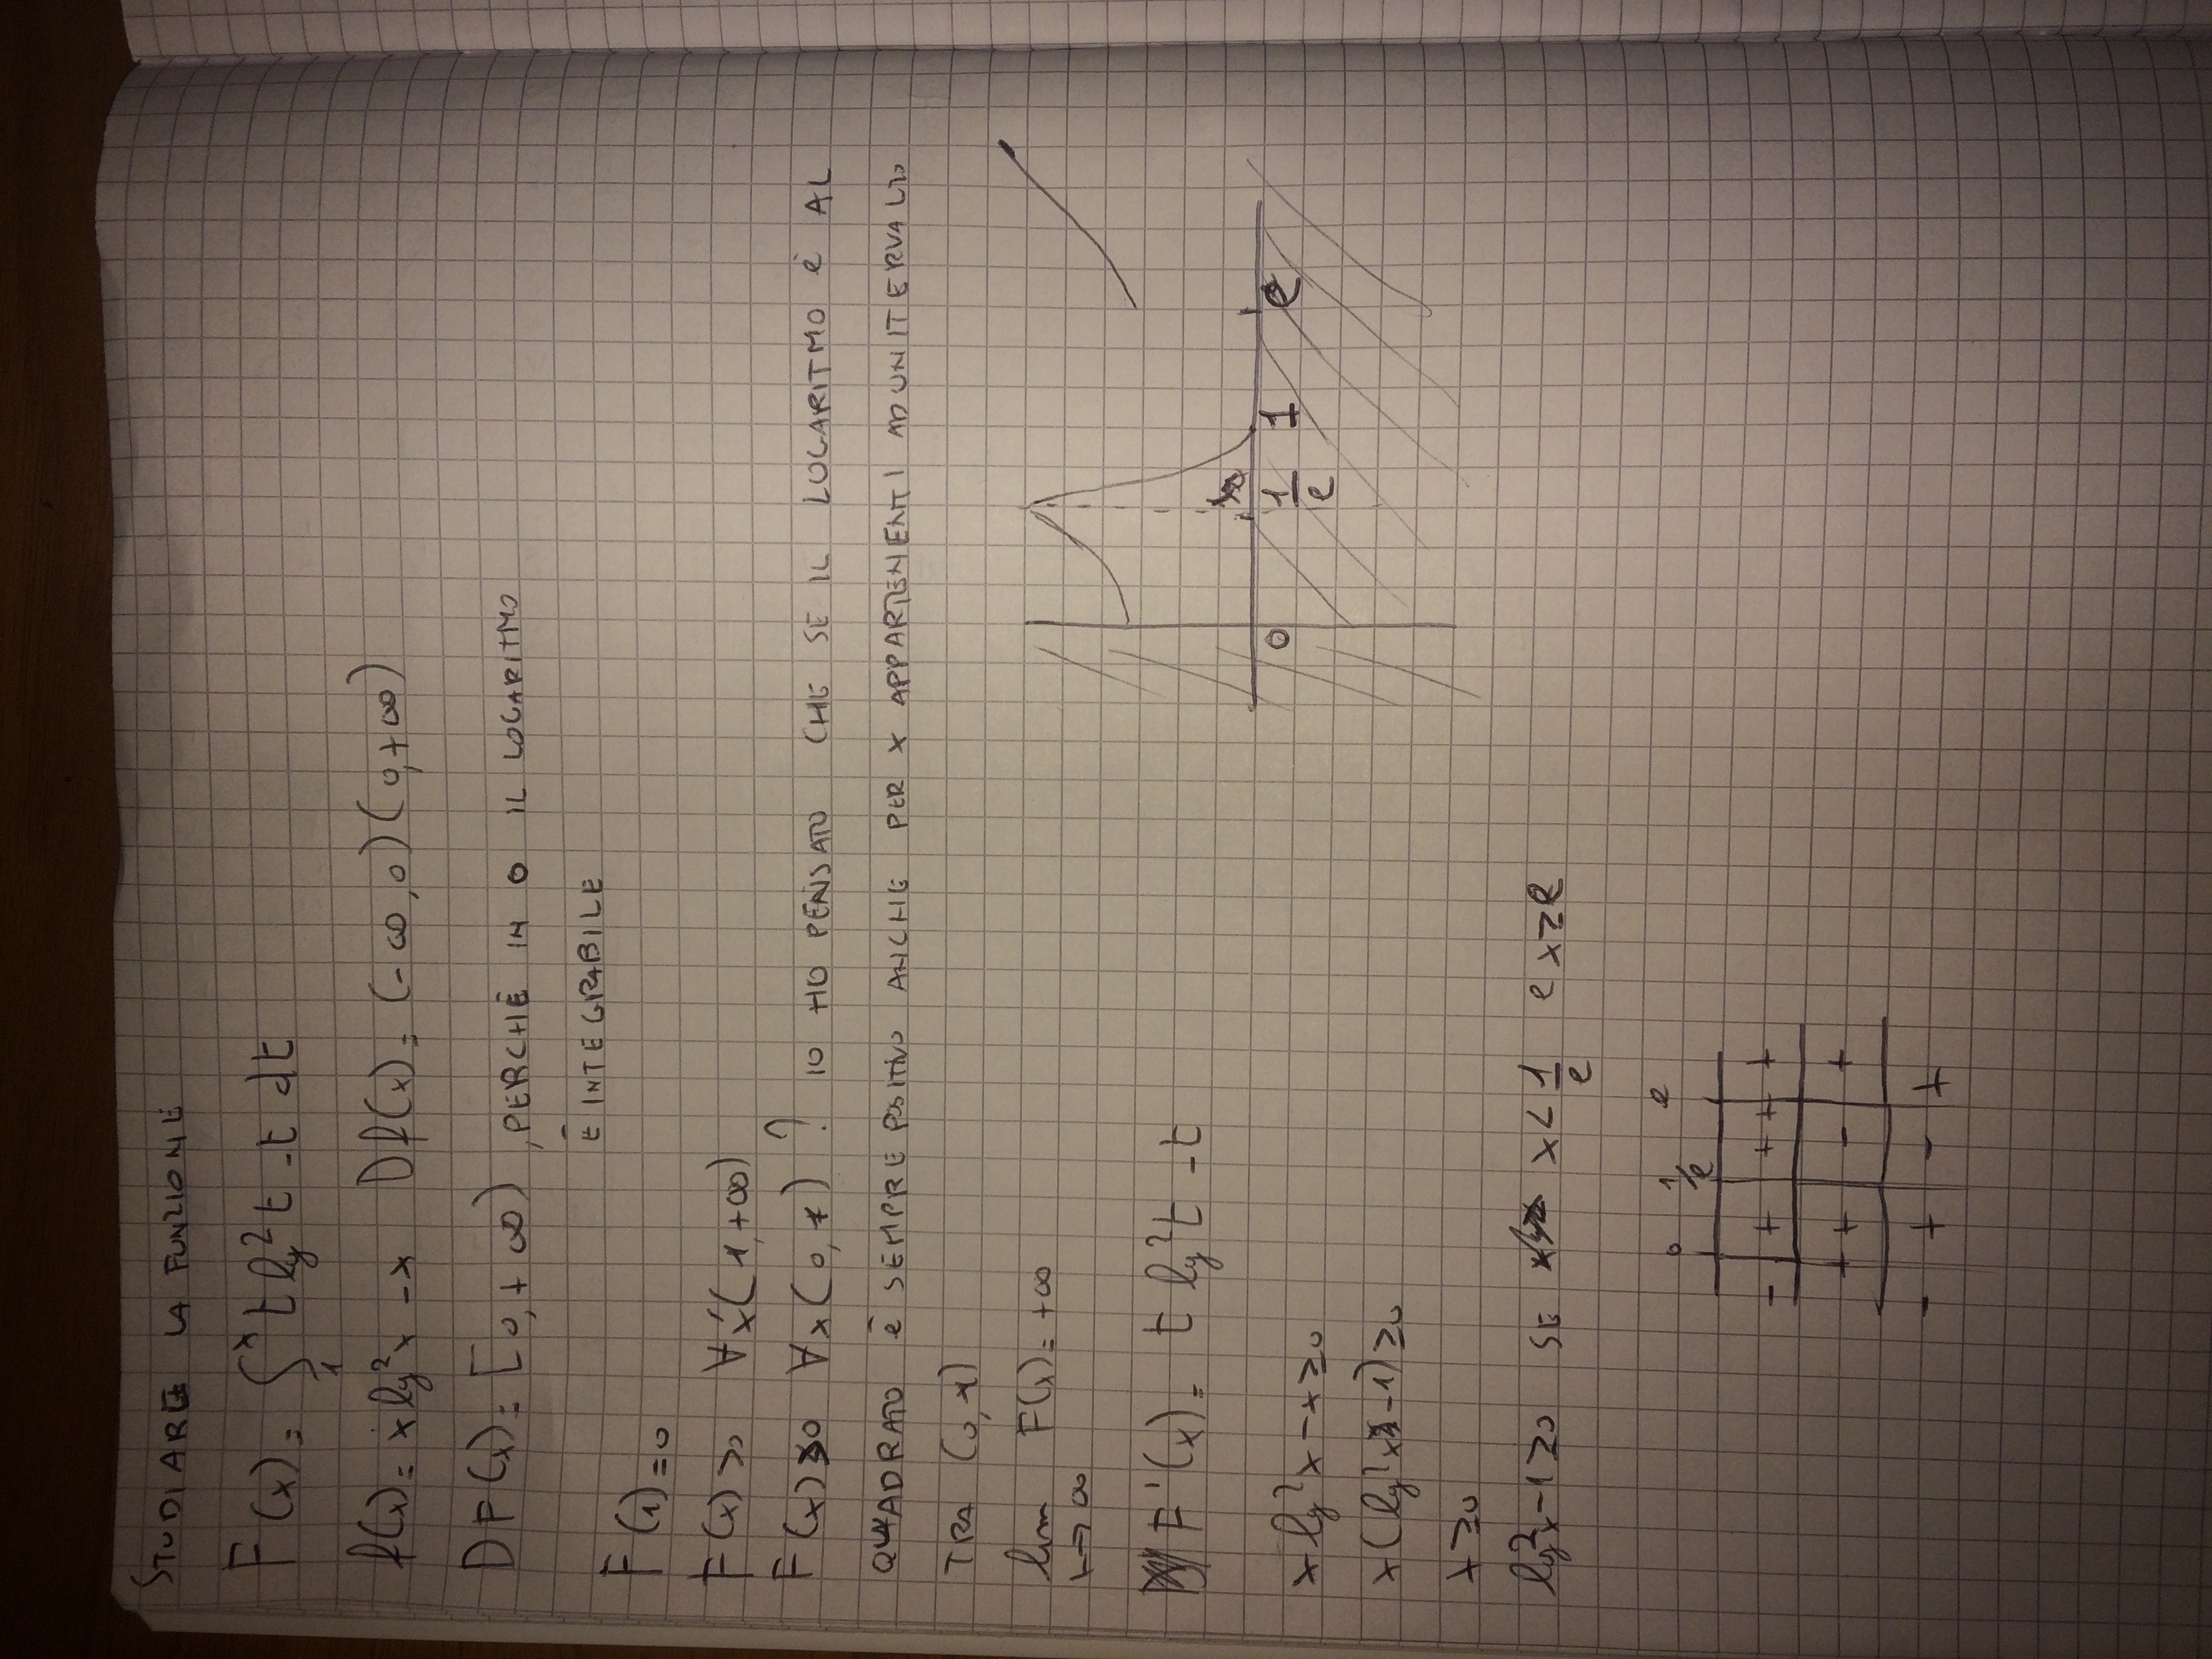 STUDIARE LA FUNZIONE
F(x)= ∫₁ˣ t lg²t -t dt
f(x)= x lg²x -x Df(x)= (-∞,0)(0,+∞)
DF(x)= [0,+∞) ,PERCHÈ IN 0 IL LOGARITMO
È INTEGRABILE
F(1)=0
F(x)>0 ∀x(1,+∞)
F(x)>0 ∀x(0,1) ? IO HO PENSATO CHE SE IL LOGARITMO È AL
QUADRATO È SEMPRE POSITIVO ANCHE PER X APPARTENENTI AD UN ITERVALLO
TRA (0,1)
lim F(x)=+∞
x→∞
F'(x)= t lg²t -t
x lg²x -x≥0
x(lg²x-1)≥0
x≥0
lg²x-1≥0 SE x<1/e e x≥e
0 1/e e
- + + + +
+ + - +
- + - +
0 1/e 1 e